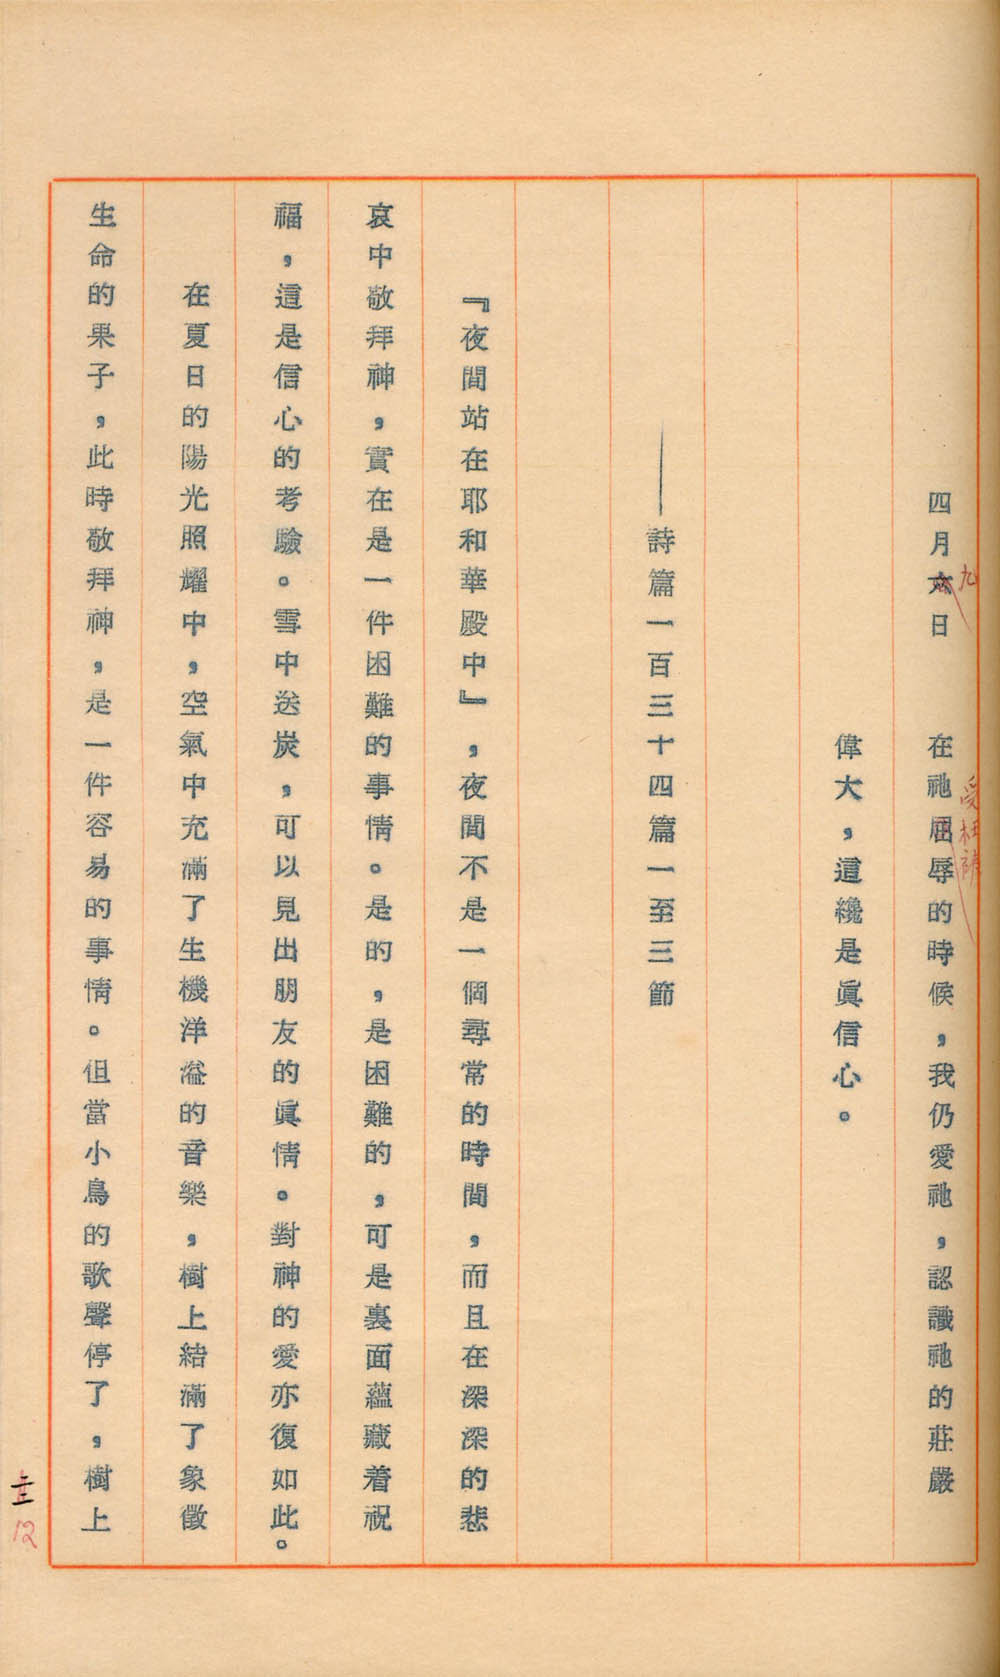 四月六日　在祂屈辱的時候，我仍愛祂，認識祂的莊嚴
九
受
偉大，這纔是眞信心。
——詩篇一百三十四篇一至三節
『夜間站在耶和華殿中』，夜間不是一個尋常的時間，而且在深深的悲
哀中敬拜神，實在是一件困難的事情。是的，是困難的，可是裏面蘊藏着祝
福，這是信心的考驗。雪中送炭，可以見出朋友的眞情。對神的愛亦復如此。
在夏日的陽光照耀中，空氣中充滿了生機洋溢的音樂，樹上結滿了象徵
生命的果子，此時敬拜神，是一件容易的事情。但當小鳥的歌聲停了，樹上
12